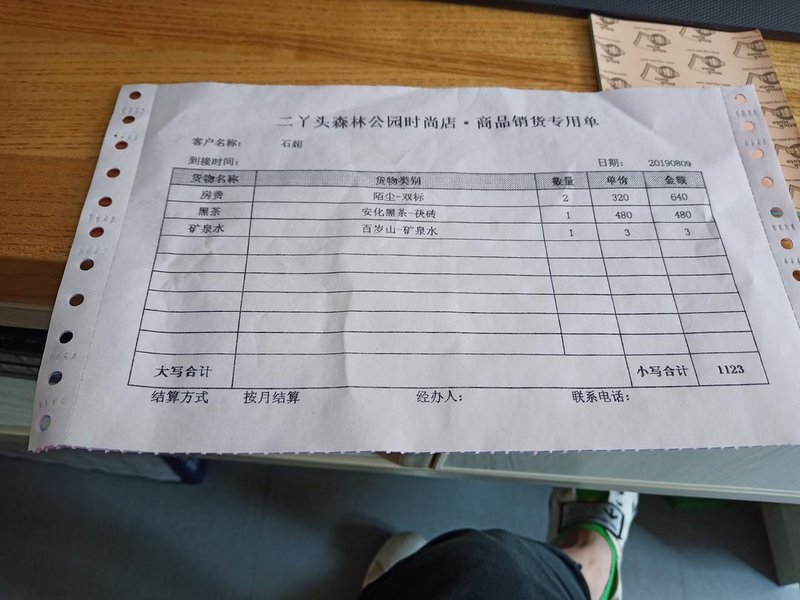 二丫头森林公园时尚店·商品销货专用单
客户名称: 石超
到接时间: 日期: 20190809
货物名称 货物类别 数量 单价 金额
房费 陌尘-双标 2 320 640
黑茶 安化黑茶-茯砖 1 480 480
矿泉水 百岁山-矿泉水 1 3 3
大写合计 小写合计 1123
结算方式 按月结算 经办人: 联系电话: